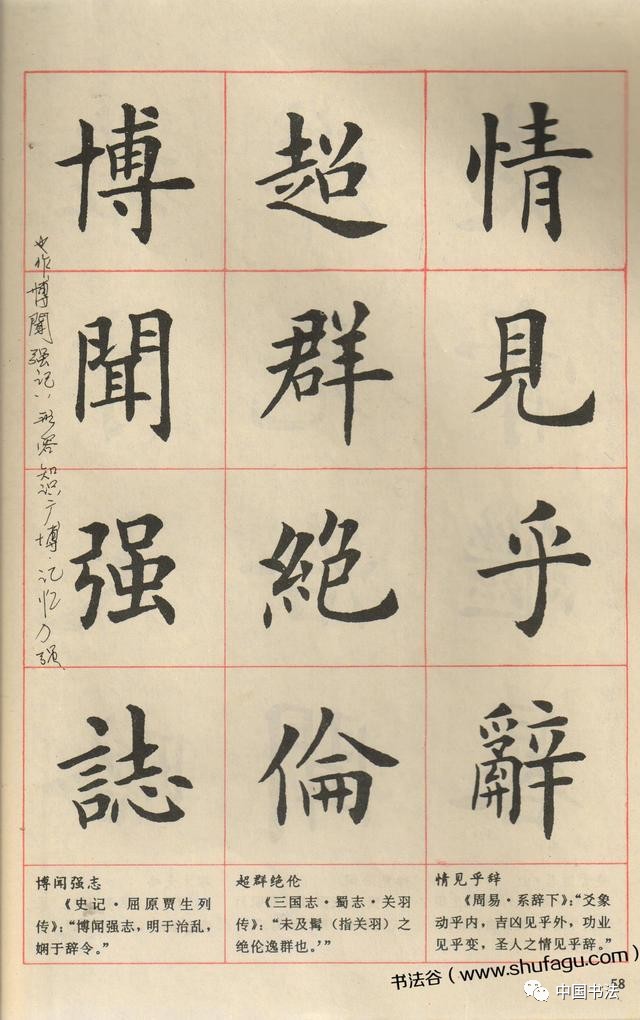 情見乎辭
超群絕倫
博聞强誌
也作“博聞强记”，形容知识广博，记忆力强
情见乎辞
《周易·系辞下》：“爻象
动乎内，吉凶见乎外，功业
见乎变，圣人之情见乎辞。”
超群绝伦
《三国志·蜀志·关羽
传》：“未及髯（指关羽）之
绝伦逸群也。’”
博闻强志
《史记·屈原贾生列
传》：“博闻强志，明于治乱，
娴于辞令。”
书法谷（www.shufagu.com）
58
中国书法